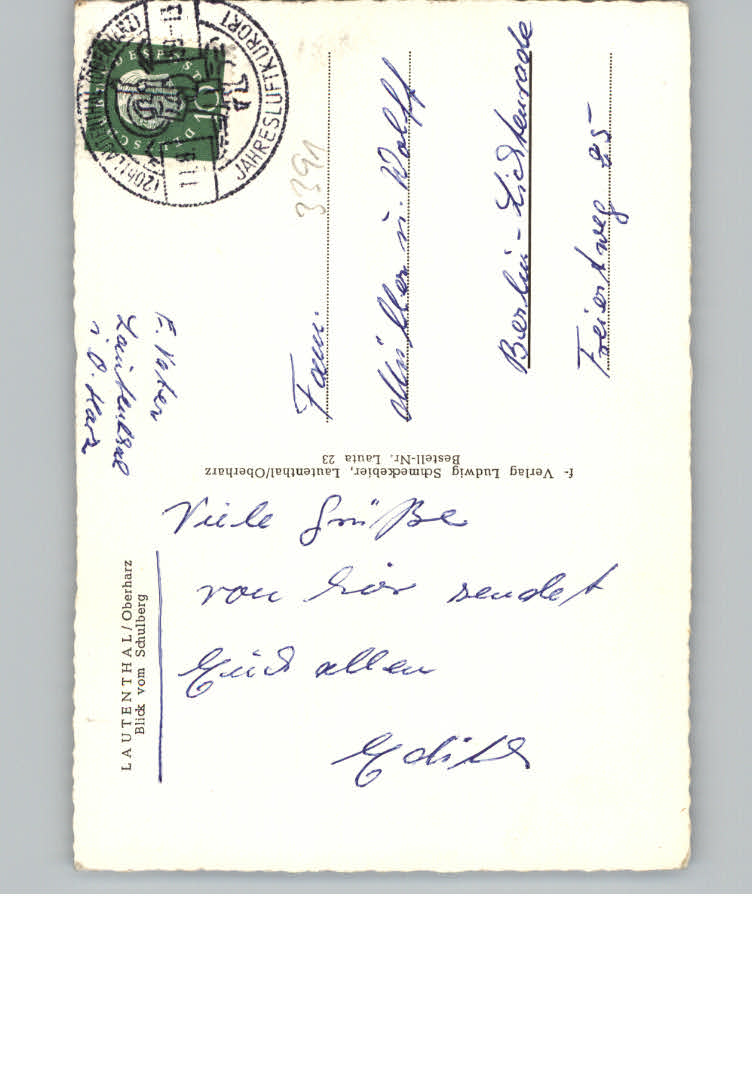 LAUTENTHAL/Oberharz
Blick vom Schulberg
E. Vater
Lautenthal
i. O. Harz
Viele Grüße
von hier sendet
Euch allen
Edith
f- Verlag Ludwig Schmeckebier, Lautenthal/Oberharz
Bestell-Nr. Lauta 23
JAHRESLUFTKURORT
DEUTSCHE BUNDESPOST
10
3391
Fam.
Müller u. Wolff
Berlin-Lichtenrade
25